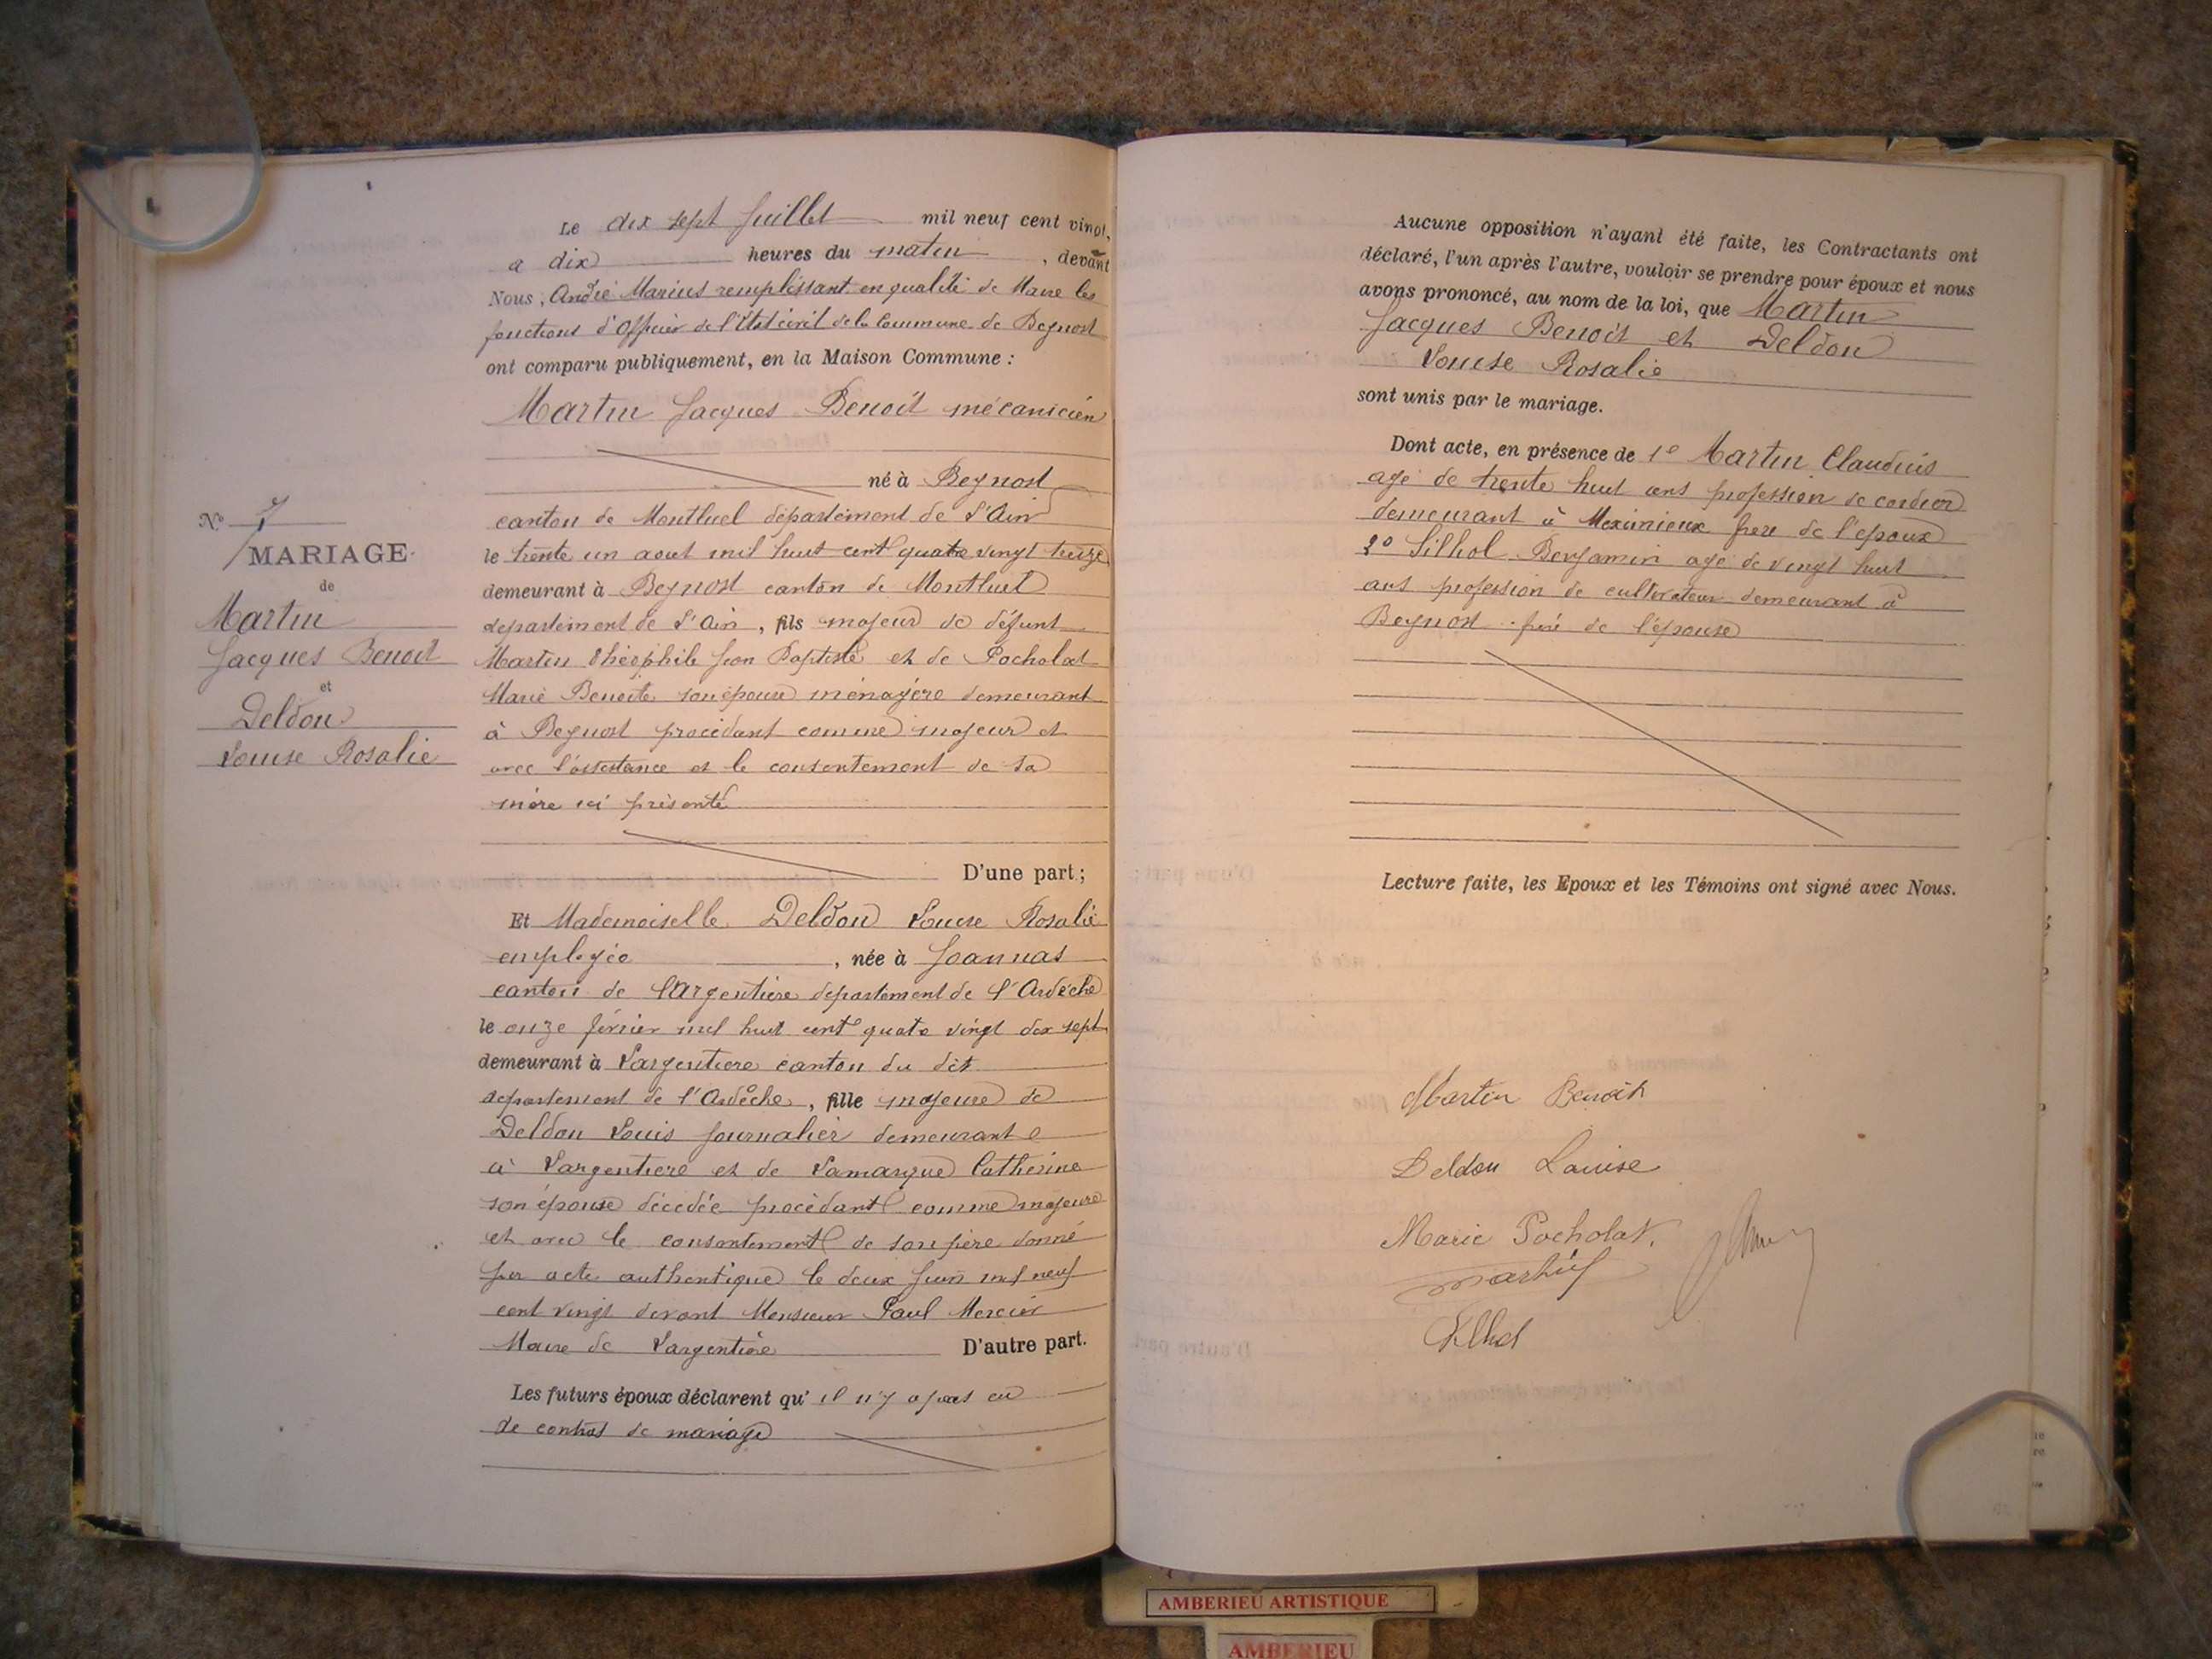 Le dix sept Juillet mil neuf cent vingt,
a dix heures du matin, devant
Nous, André Marius remplissant en qualité de Maire les
fonctions d'Officier de l'Etat civil de la Commune de Beynost
ont comparu publiquement, en la Maison Commune :
Martin Jacques Benoit mécanicien
né à Beynost
canton de Montluel département de l'Ain
le trente un aout mil huit cent quatre vingt treize
demeurant à Beynost canton de Montluel
departement de l'Ain, fils majeur de défunt
Martin Théophile Jean Baptiste et de Pocholat
Marie Benoite son épouse ménagère demeurant
à Beynost procédant comme majeur et
avec l'assistance et le consentement de sa
mère ici présente
D'une part ;
Et Mademoiselle Deldon Louise Rosalie
employée, née à Joannas
canton de Largentière departement de l'Ardèche
le onze février mil huit cent quatre vingt dix sept
demeurant à Largentiere canton du dit
departement de l'Ardèche, fille majeure de
Deldon Louis Journalier demeurant
à Largentiere et de Lamarque Catherine
son épouse décédée procédant comme majeure
et avec le consentement de son père donné
par acte authentique le deux Juin mil neuf
cent vingt devant Monsieur Paul Mercier
Maire de Largentière D'autre part.
Les futurs époux déclarent qu'il n'y a pas eu
de contrat de mariage
N° 7
MARIAGE
de
Martin
Jacques Benoit
et
Deldon
Louise Rosalie
Aucune opposition n'ayant été faite, les Contractants ont
déclaré, l'un après l'autre, vouloir se prendre pour époux et nous
avons prononcé, au nom de la loi, que Martin
Jacques Benoit et Deldon
Louise Rosalie
sont unis par le mariage.
Dont acte, en présence de 1° Martin Claudius
agé de trente huit ans profession de cordier
demeurant à Meximieux frere de l'epoux
2° Silhol Benjamin agé de vingt huit
ans profession de cultivateur demeurant à
Beynost de l'épouse
Lecture faite, les Epoux et les Témoins ont signé avec Nous.
Martin Benoit
Deldon Louise
Marie Pocholat.
Martin
Silhol
AMBERIEU ARTISTIQUE
AMBERIEU